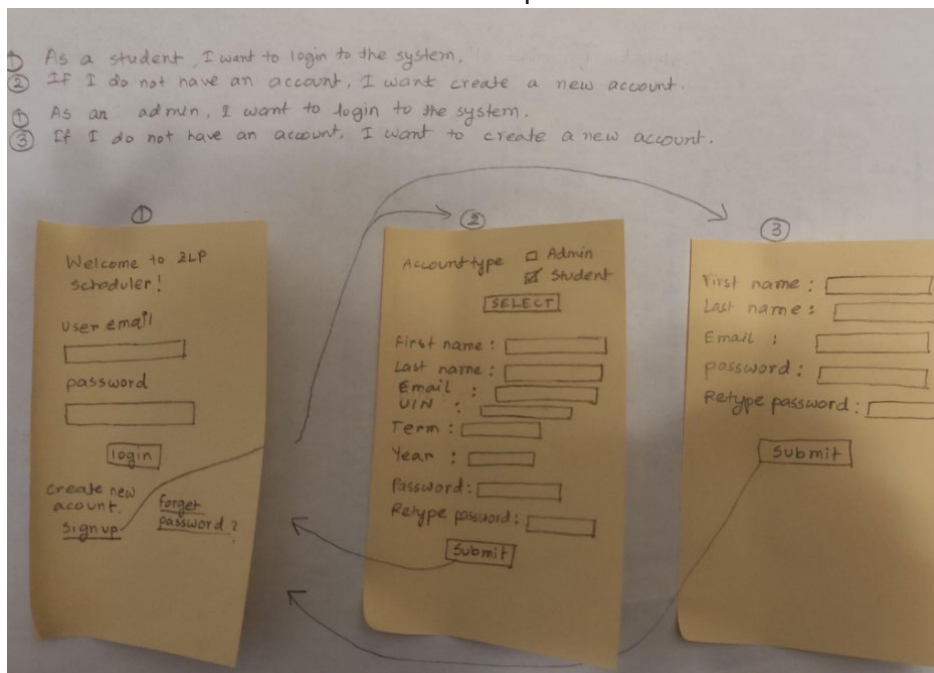 ① As a student, I want to login to the system.
② If I do not have an account, I want create a new account.
① As an admin, I want to login to the system.
③ If I do not have an account, I want to create a new account.
①
Welcome to 2LP
scheduler!
User email
password
login
Create new
acount.
Sign up
forget
password?
②
Account type
Admin
Student
SELECT
First name :
Last name :
Email :
UIN :
Term :
Year :
Password :
Retype password :
Submit
③
First name :
Last name :
Email :
password :
Retype password :
Submit